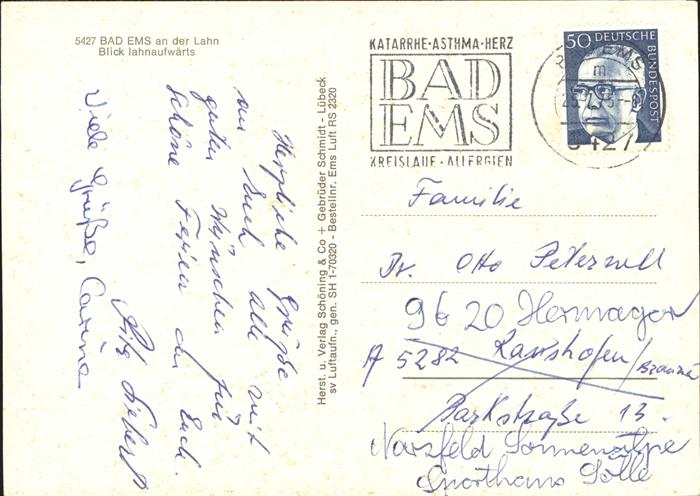 5427 BAD EMS an der Lahn
Blick lahnaufwärts
Herzliche Grüße
an Euch alle mit
guten Wünschen für
schöne Ferien an Euch.
Viele Grüße, Carina
Herst. u. Verlag Schöning & Co + Gebrüder Schmidt - Lübeck
sv Luftaufn., gen. SH 1-70320 - Bestellnr. Ems Luft RS 2320
KATARRHE-ASTHMA-HERZ
BAD
EMS
KREISLAUF-ALLERGIEN
50 DEUTSCHE
BUNDESPOST
BAD EMS
m
5427
Familie
Dr. Otto Peterzell
9620 Hermagor
A 5282 Ranshofen/
Braunau
Parkstraße 13.
Nassfeld Sonnenalpe
Sporthaus Sölle